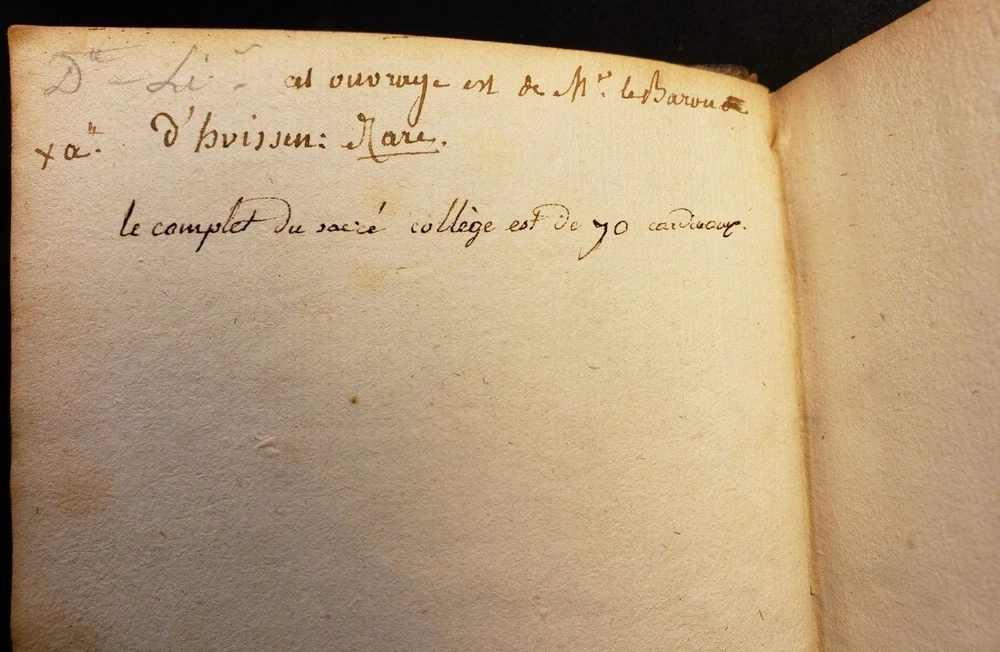 cet ouvrage est de Mr. le Baron
d'huissen: Rare.
le complet du sacré collège est de 70 cardinaux.